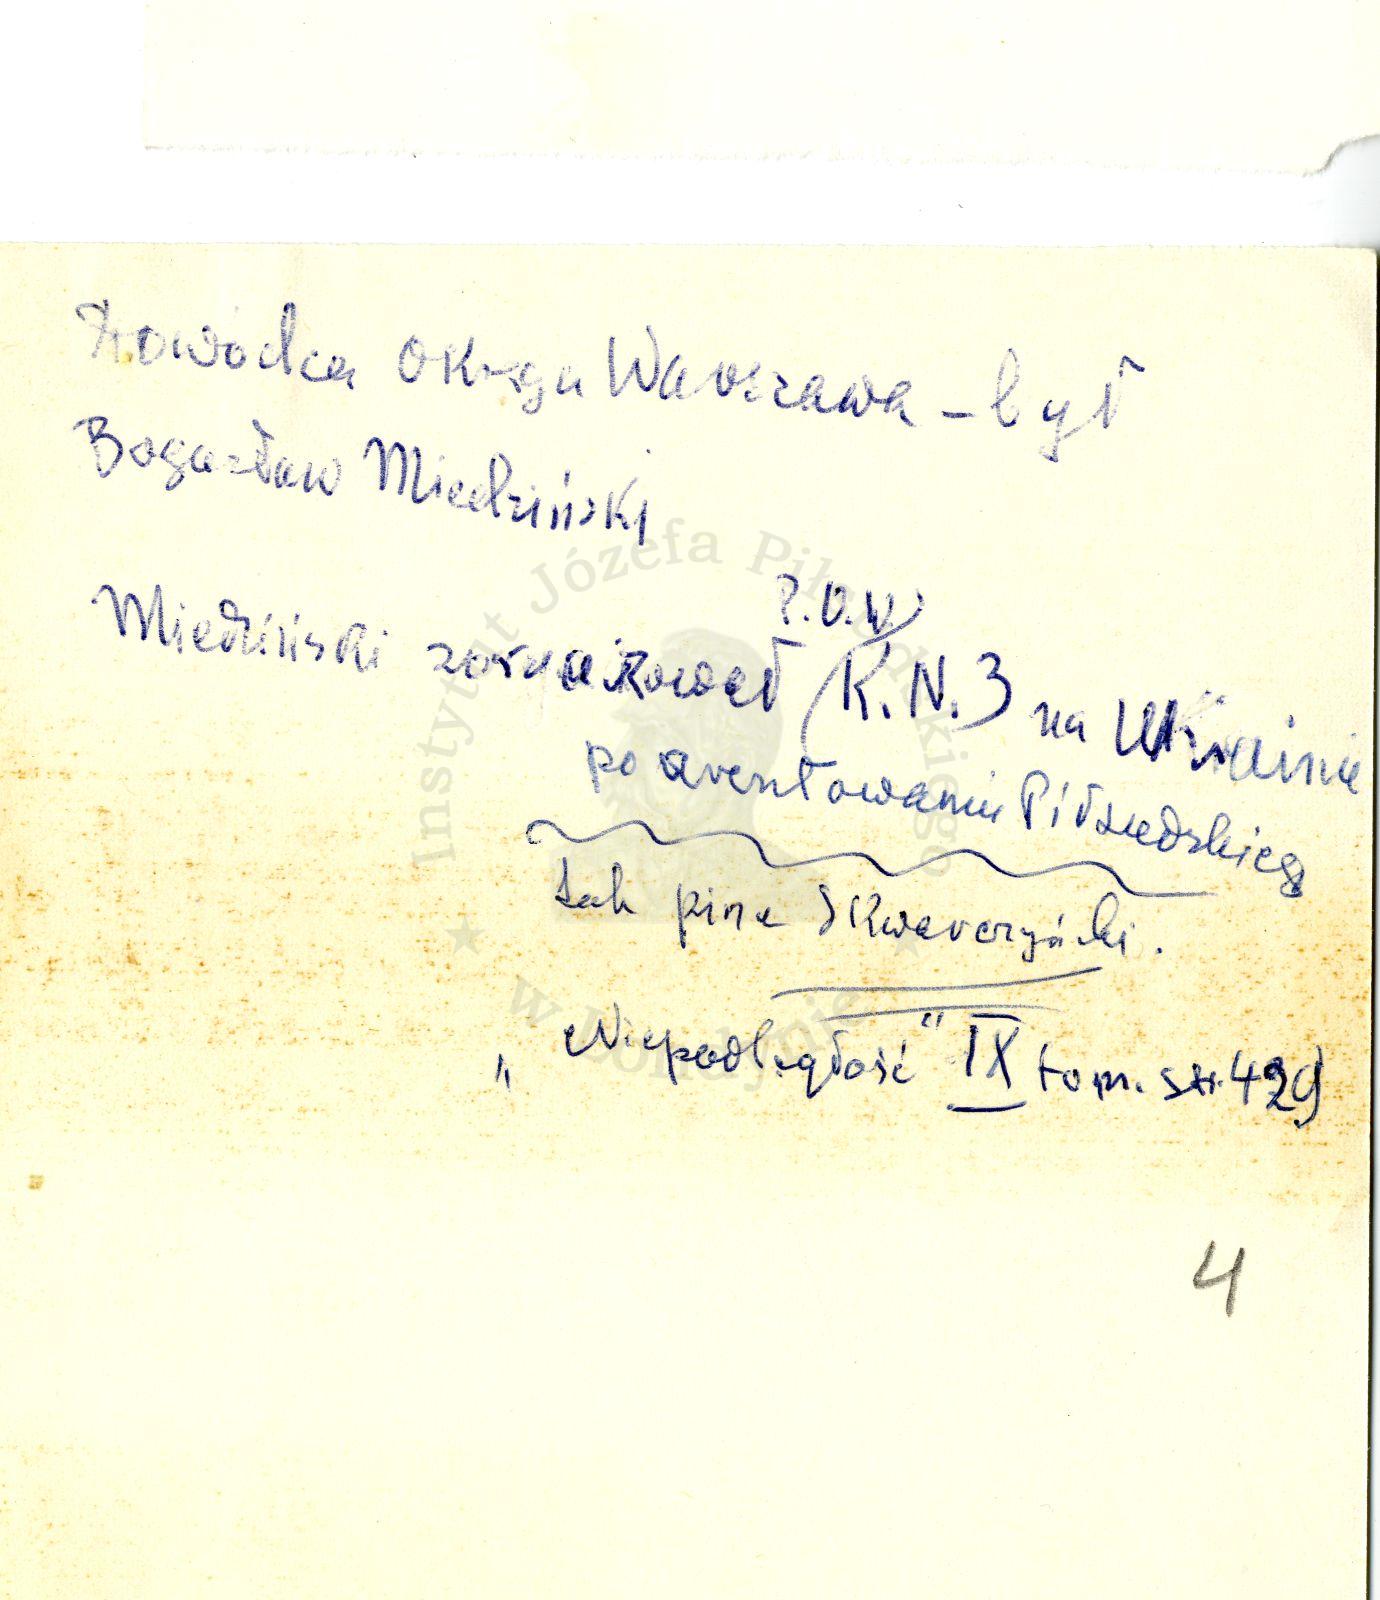 Dowódca Okręgu Warszawa – był
Bogusław Miedziński
P.O.W.
Miedziński zorganizował K.N.3 na Ukrainie
po aresztowaniu Piłsudskiego
tak pisze Skwarczyński.
„Niepodległość" IX tom. str. 429
4
Instytut Józefa Piłsudskiego
w Londynie